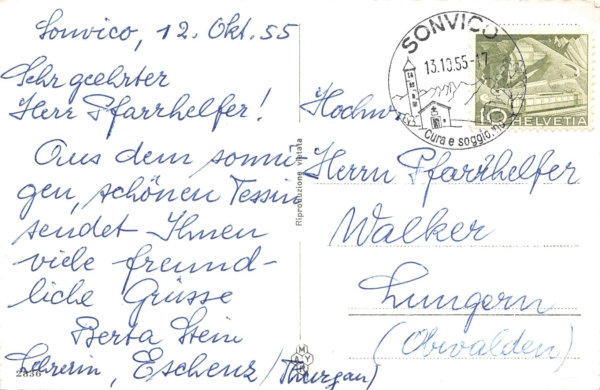 Sonvico, 12. Okt. 55
Sehr geehrter
Herr Pfarrhelfer!
Aus dem sonni
gen, schönen Tessin
sendet Ihnen
viele freund-
liche Grüsse
Berta Stein
Lehrerin, Eschenz (Thurgau)
2836
Riproduzione vietata
SONVICO
13.10.55-17
Cura e soggio
10
HELVETIA
Hochw.
Herrn Pfarrhelfer
Walker
Lungern
(Obwalden)